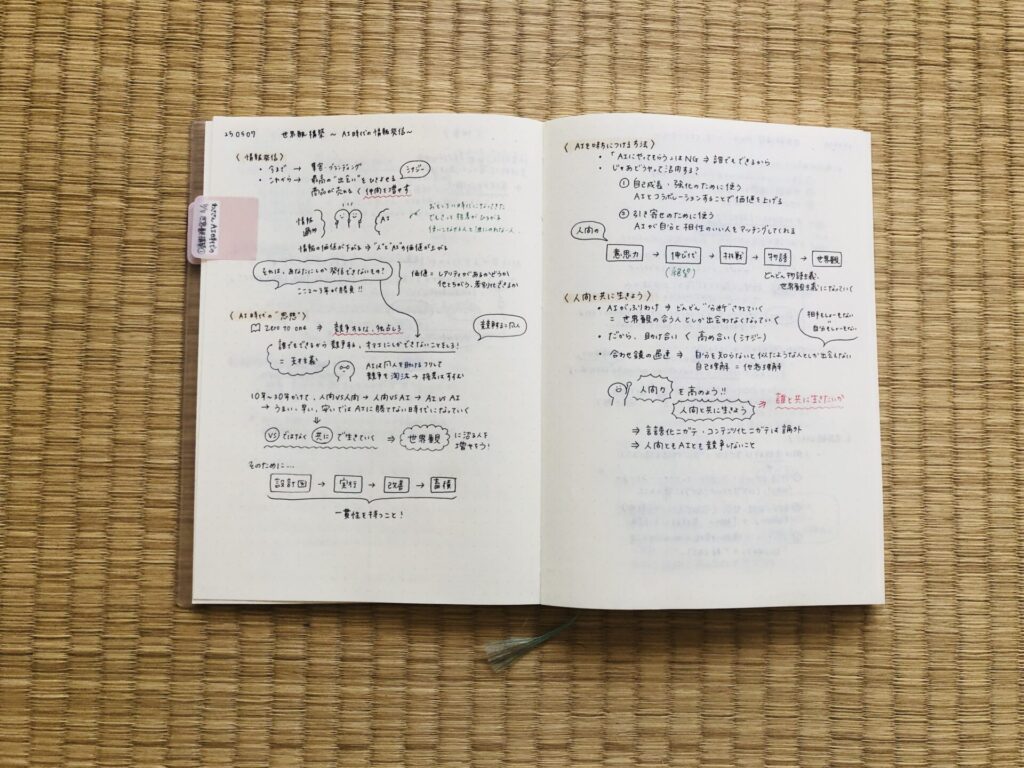 250507 世界観構築 〜AI時代の情報発信〜
〈情報発信〉
・今まで → 集客・ブランディング
・これから → 最高の"出会い"をひきよせる
シナジー
商品が売れる < 仲間を増やす
情報
過多
AI
情報の価値が下がる ⇒ "人"と"AI"の価値が上がる
それは、あなたにしか発信できないもの?
ここ2〜3年が勝負!!
価値 = レアリティがあるかどうか
他とちがう、差別化できるか
〈AI時代の"思想"〉
Zero to one ⇒ 競争するな、独占しろ
競争するは凡人
誰でもできるから競争する、オマエにしかできないことをしろ!
= 天才主義
AIは凡人を助けるフリして
競争を淘汰 →
10年〜20年かけて、人間VS人間 → 人間VS AI → AI VS AI
→ うまい、早い、安いではAIに勝てない時代になっていく
VS ではなく 共に で生きていく ⇒ 世界観 に沼る人を
増やそう!
そのために…
設計図 → 実行 → 改善 → 蓄積
一貫性を持つこと!
〈AIを味方につける方法〉
・「AIにやってもらう」はNG ⇒ 誰でもできるから
・じゃあどうやって活用する?
① 自己成長・強化のために使う
AIとコラボレーションすることで価値を上げる
② 引き寄せのために使う
AIが自分と相性のいい人をマッチングしてくれる
人間の
意思力 → 伸びしろ → 挑戦 → 物語 → 世界観
どんどん物語主義、
世界観主義になっていく
〈人間と共に生きよう〉
・AIがふりわけ ⇒ どんどん"分断"されていく
= 世界観の合う人としか出会わなくなっていく
相手もしょーもない
=
自分もしょーもない
・だから、助け合い < 高め合い(シナジー)
・合わせ鏡の過速 ⇒ 自分を知らないと似たような人としか出会えない
自己理解 = 他者理解
人間力 を高めよう!!
人間と共に生きよう ⇒ 誰と共に生きたいか
⇒ 言語化ニガテ・コンテンツ化ニガテは論外
⇒ 人間ともAIとも競争しないこと